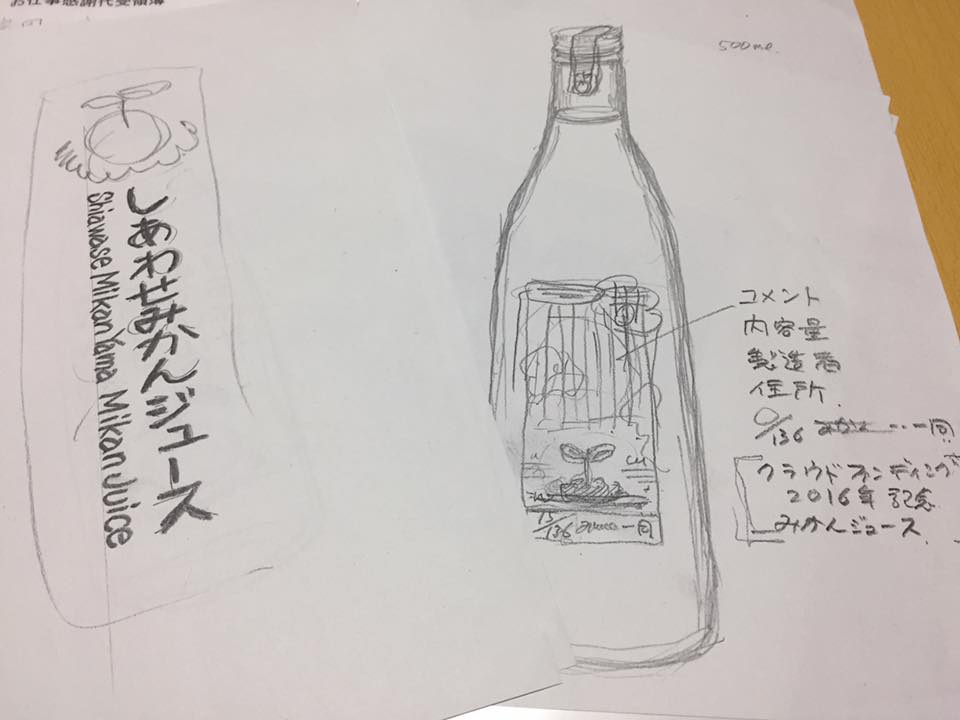 お仕事感謝代受領簿
しあわせみかんジュース
Shiawase Mikan Yama Mikan Juice
500ml.
コメント
内容量
製造者
住所
/136 一同
クラウドファンディング
2016年 記念
みかんジュース
15/136 一同